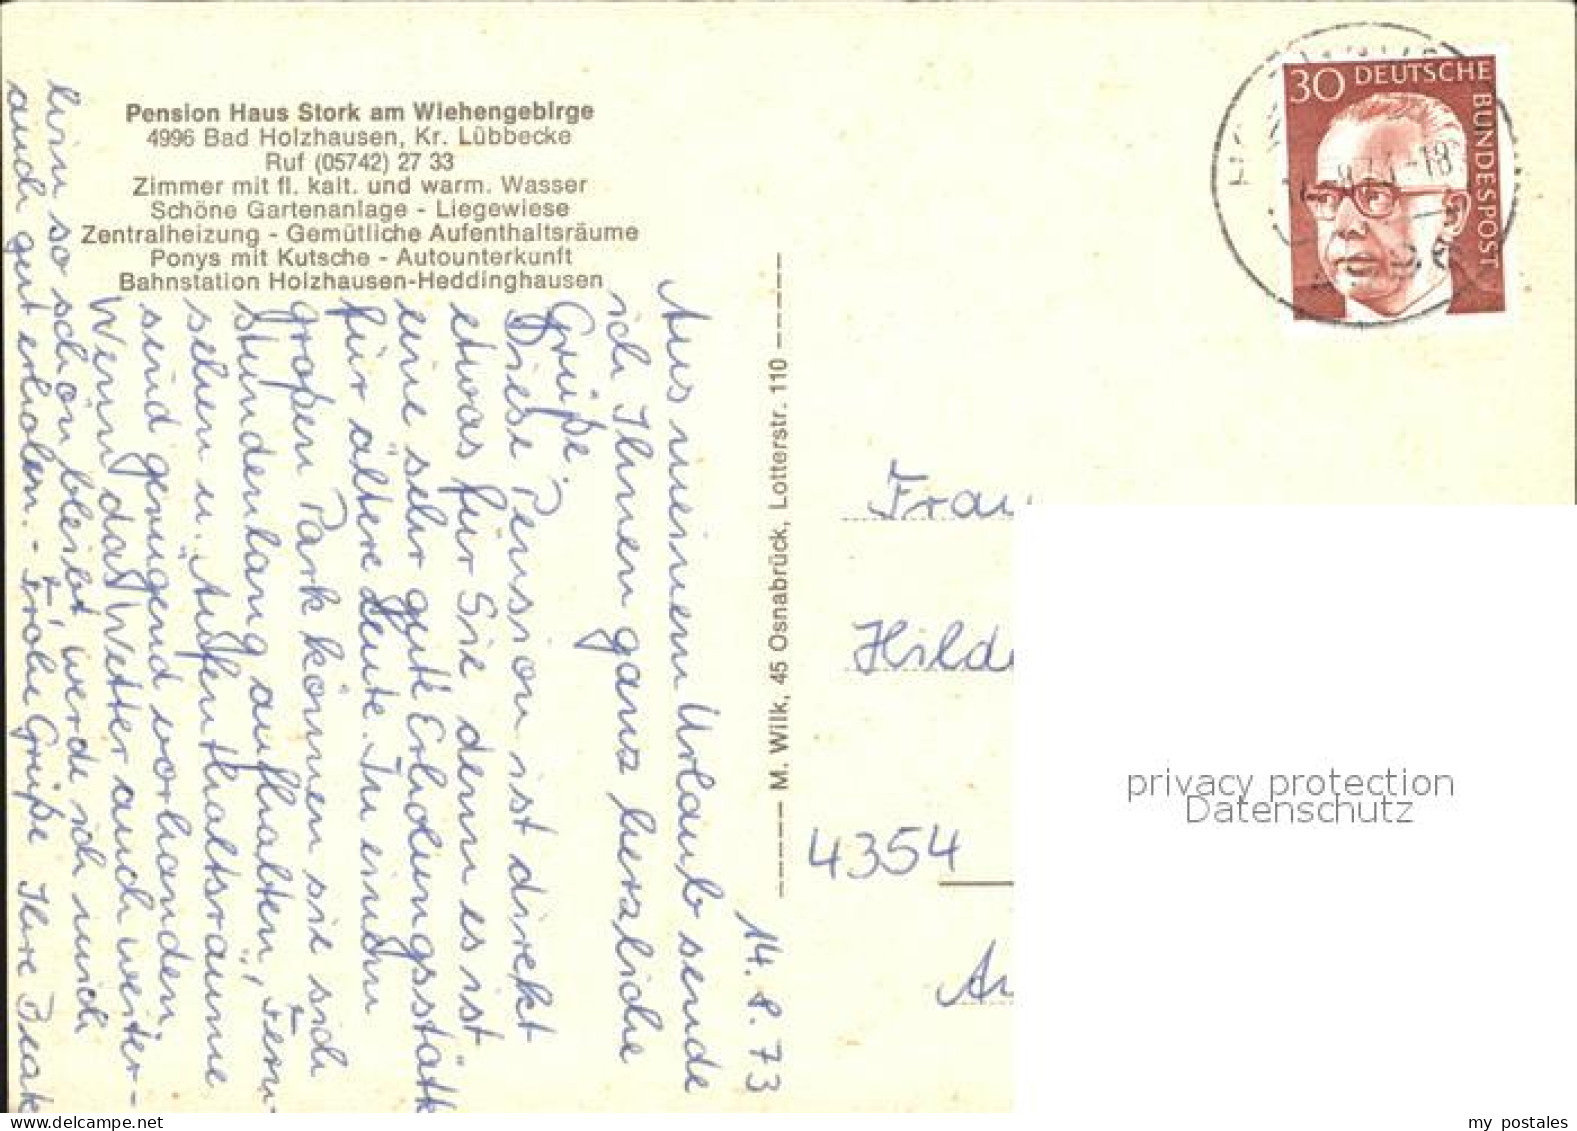 Pension Haus Stork am Wiehengebirge
4996 Bad Holzhausen, Kr. Lübbecke
Ruf (05742) 27 33
Zimmer mit fl. kalt. und warm. Wasser
Schöne Gartenanlage - Liegewiese
Zentralheizung - Gemütliche Aufenthaltsräume
Ponys mit Kutsche - Autounterkunft
Bahnstation Holzhausen-Heddinghausen
14. 8. 73
Aus meinem Urlaub sende
ich Ihnen ganz herzliche
Grüße.
Diese Pension ist direkt
etwas für Sie denn es ist
eine sehr gute Erholungsstätte
für ältere Leute. In einem
großen Park können sie sich
stundenlang aufhalten, Fern-
sehen u. Aufenthaltsräume
sind genügend vorhanden.
Wenn das Wetter auch weiter-
hin so schön bleibt, werde ich mich
auch gut erholen. - Frohe Grüße Ihre
M. Wilk, 45 Osnabrück, Lotterstr. 110
30 DEUTSCHE
BUNDESPOST
Frau
Hilde
4354
privacy protection
Datenschutz
my postales
www.delcampe.net